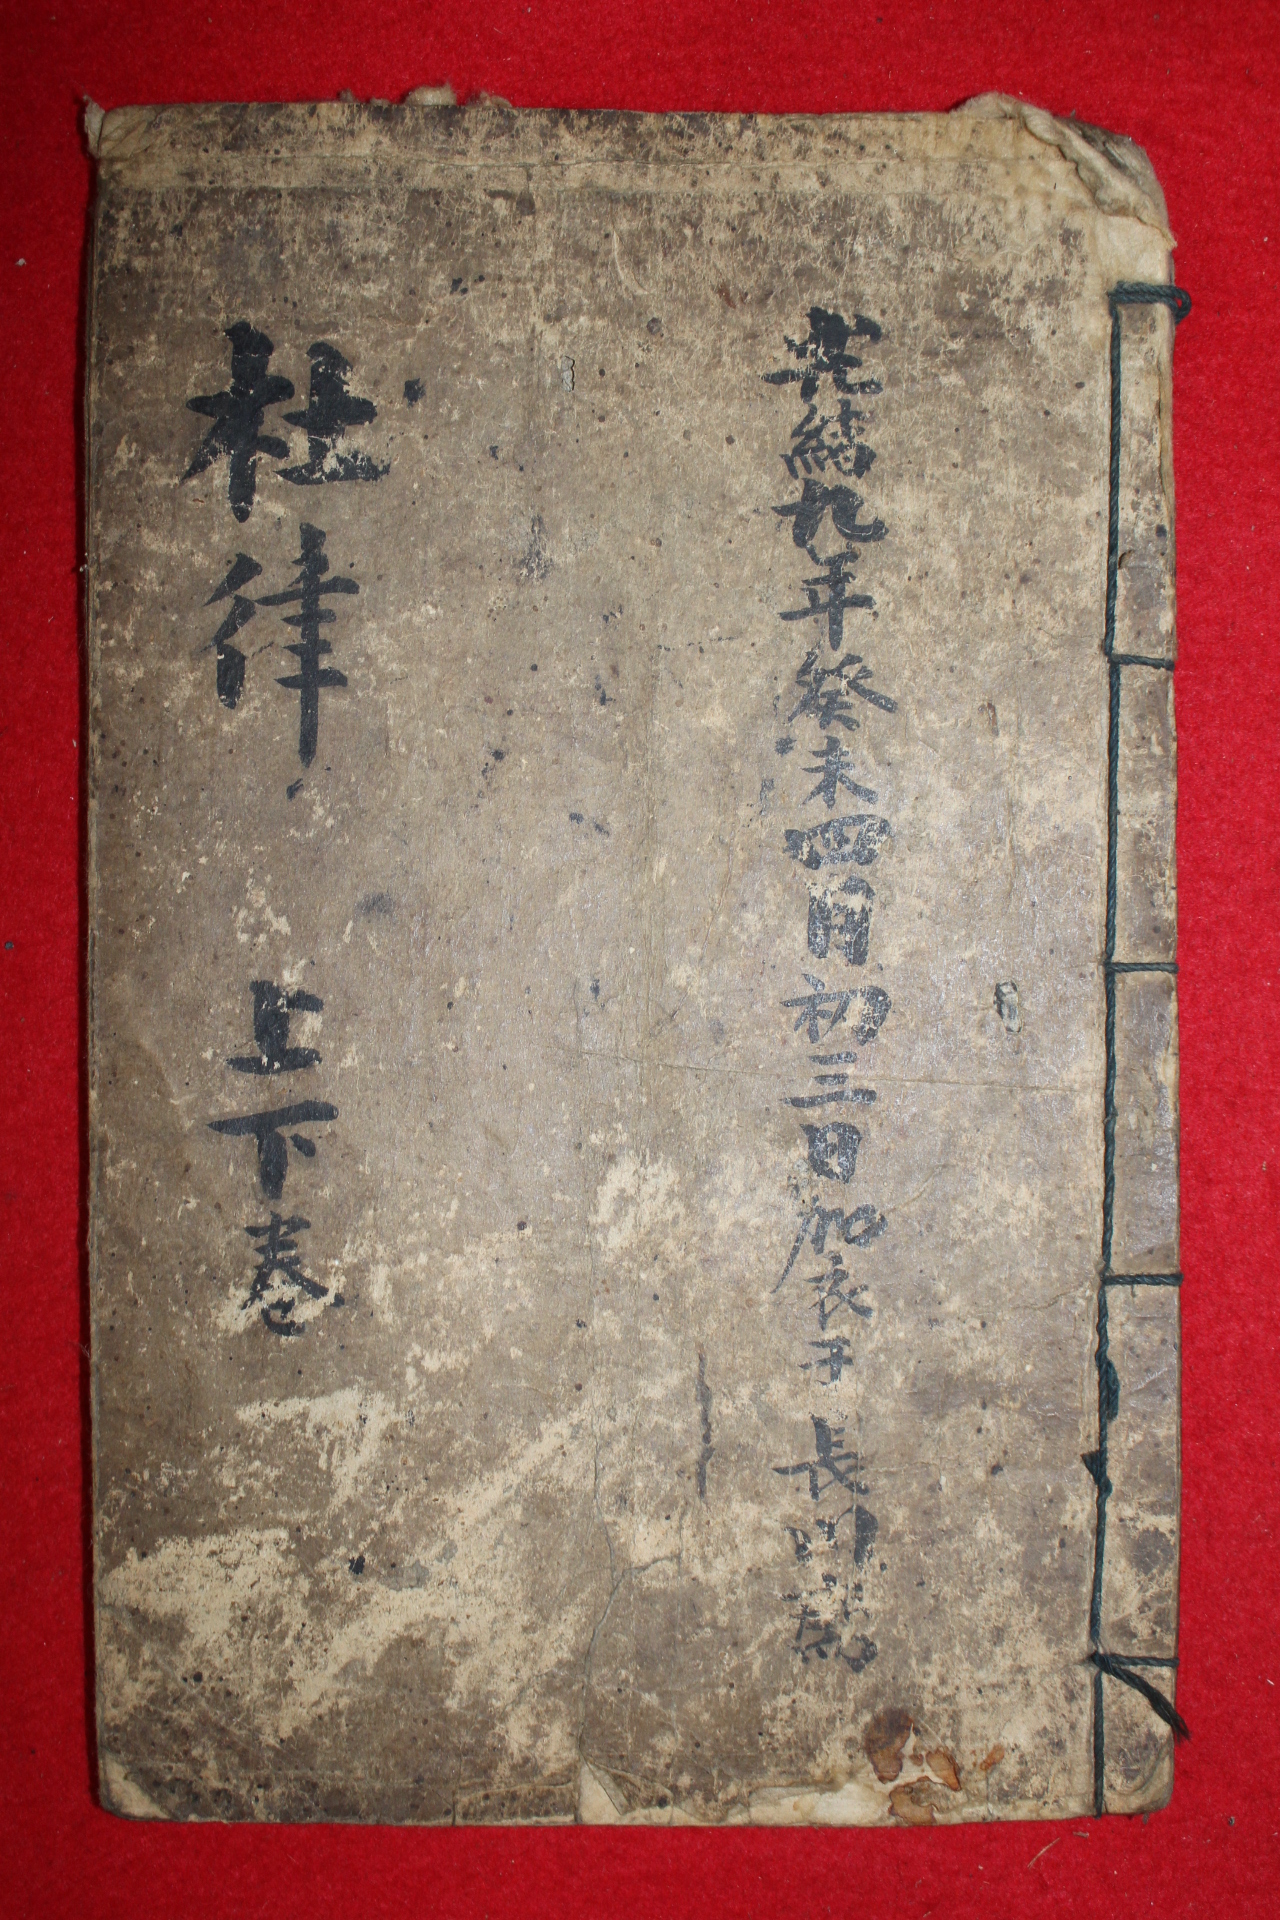 光緖九年癸未四月初三日加衣于 長川
杜律 上下卷